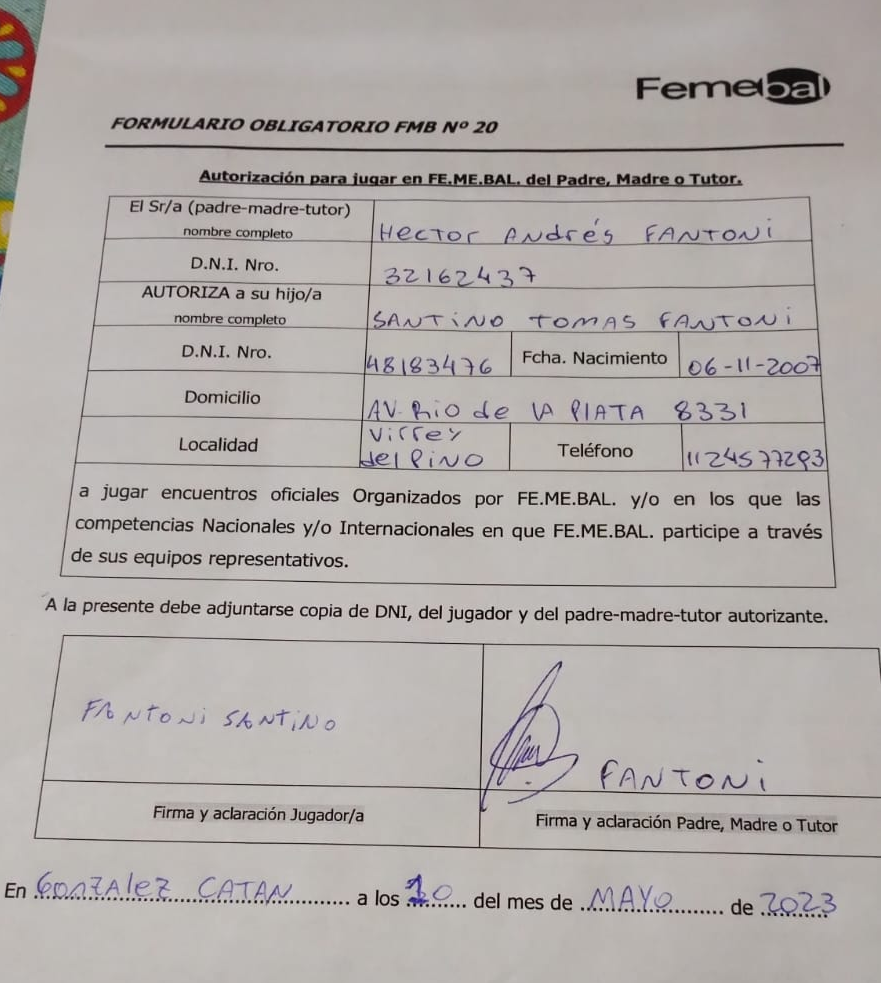 Femebal
FORMULARIO OBLIGATORIO FMB Nº 20
Autorización para jugar en FE.ME.BAL. del Padre, Madre o Tutor.
El Sr/a (padre-madre-tutor)
nombre completo
Hector Andrés FANTONI
D.N.I. Nro.
32162437
AUTORIZA a su hijo/a
nombre completo
SANTINO TOMAS FANTONI
D.N.I. Nro.
48183476
Fcha. Nacimiento
06-11-2007
Domicilio
AV. Rio de LA PLATA 8331
Localidad
Virrey
del PiNO
Teléfono
1124577293
a jugar encuentros oficiales Organizados por FE.ME.BAL. y/o en los que las
competencias Nacionales y/o Internacionales en que FE.ME.BAL. participe a través
de sus equipos representativos.
A la presente debe adjuntarse copia de DNI, del jugador y del padre-madre-tutor autorizante.
FANTONI SANTINO
FANTONI
Firma y aclaración Jugador/a
Firma y aclaración Padre, Madre o Tutor
En GONZALEZ CATAN a los 10 del mes de MAYO de 2023